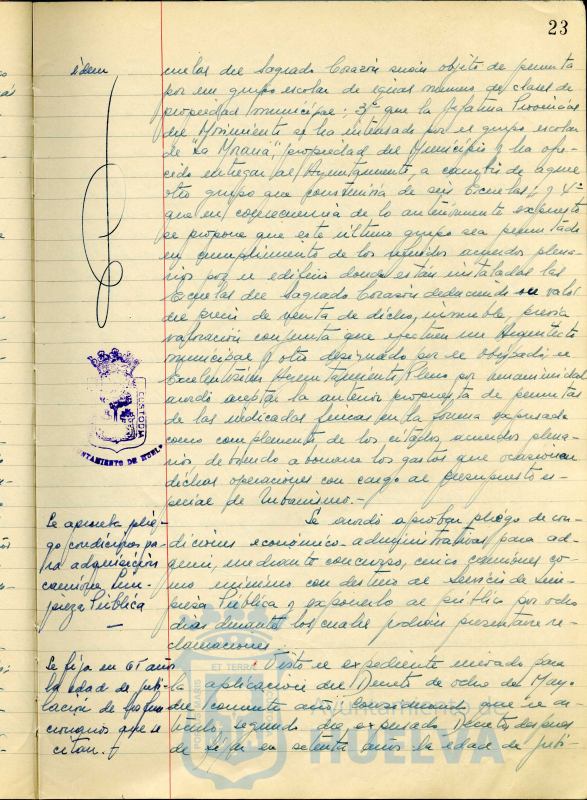 23
idem
cuelas del Sagrado Corazón sean objeto de permuta
por un grupo escolar de igual número de clases de
propiedad municipal; 3º que la Jefatura Provincial
del Movimiento se ha interesado por el grupo escolar
de "La Morana", propiedad del Municipio y ha ofre-
cido entregar al Ayuntamiento, a cambio de aquel
otro grupo que constaría de seis Escuelas; y 4º
que en consecuencia de lo anteriormente expuesto
se propone que este último grupo sea permutado
en cumplimiento de los referidos acuerdos plena-
rios por el edificio donde están instaladas las
Escuelas del Sagrado Corazón deduciendo su valor
del precio de venta de dicho inmueble, previa
valoración conjunta que efectúen un Arquitecto
municipal y otro designado por el Obispado, el
Excelentísimo Ayuntamiento Pleno por unanimidad
acordó aceptar la anterior propuesta de permutas
de las indicadas fincas en la forma expresada
como complemento de los citados acuerdos plena-
rios, debiendo abonarse los gastos que ocasionen
dichas operaciones con cargo al presupuesto es-
pecial de Urbanismo.-
CUSTODIA
AYUNTAMIENTO DE HUELVA
Se aprueba plie-
go condiciones pa-
ra adquisición
camiones Lim-
pieza Pública
Se acordó aprobar pliego de con-
diciones económico-administrativas para ad-
quirir, mediante concurso, cinco camiones co-
mo mínimo con destino al servicio de Lim-
pieza Pública y exponerlo al público por ocho
días durante los cuales podrán presentarse re-
clamaciones
Se fija en 65 años
la edad de jubi-
lación de los fun-
cionarios que se
citan.
Visto el expediente incoado para
la aplicación del Decreto de ocho de Mayo
del corriente año; considerando que el ar-
tículo segundo del expresado Decreto después
de fijar en setenta años la edad de jubi-
ET TERRA
HUELVA